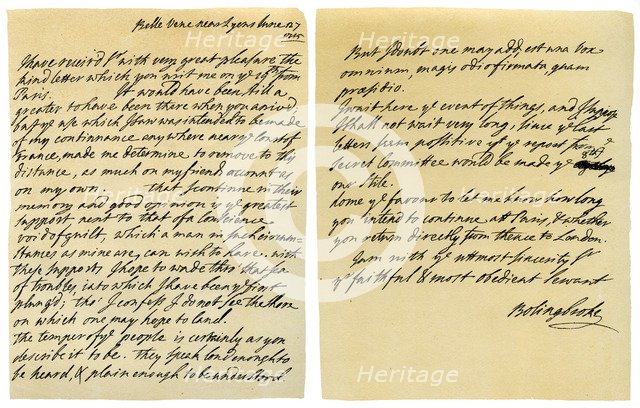 Belle Vene near Lyons June 27
1715
I have receiv'd Sr with very great pleasure the
kind letter which you writ me on ye 19th from
Paris. It would have been still a
greater to have been there when you arriv'd;
but ye use which I saw was intended to be made
of my continuance any where near ye Court of
france, made me determine to remove to this
distance, as much on my friends account as
on my own. That I continue in their
memory and good opinion is ye greatest
support next to that of a Conscience
void of guilt, which a man in such circum-
stances as mine are, can wish to have. with
these supports I hope to wade thro' that sea
of troubles into which I have been ye first
plung'd; tho' I confess I do not see the shore
on which one may hope to land.
The temper of ye people is certainly as you
describe it to be. They speak loud enough to
be heard, & plain enough to be understood.
But I doubt one may add, est una vox
omnium, magis odio firmata, quam
præsidio.
I wait here ye event of things, and I suppose
I shall not wait very long, since ye last
letters seem positive yt ye report from ye
Secret Committee would be made ye 8th
our Stile.
do me ye favour to let me know how long
you intend to continue att Paris, & whether
you return directly from thence to London.
I am with ye uttmost sincerity Sr
ye faithful & most obedient Servant
Bolingbroke
Heritage
Heritage
Heritage
Heritage
Heritage